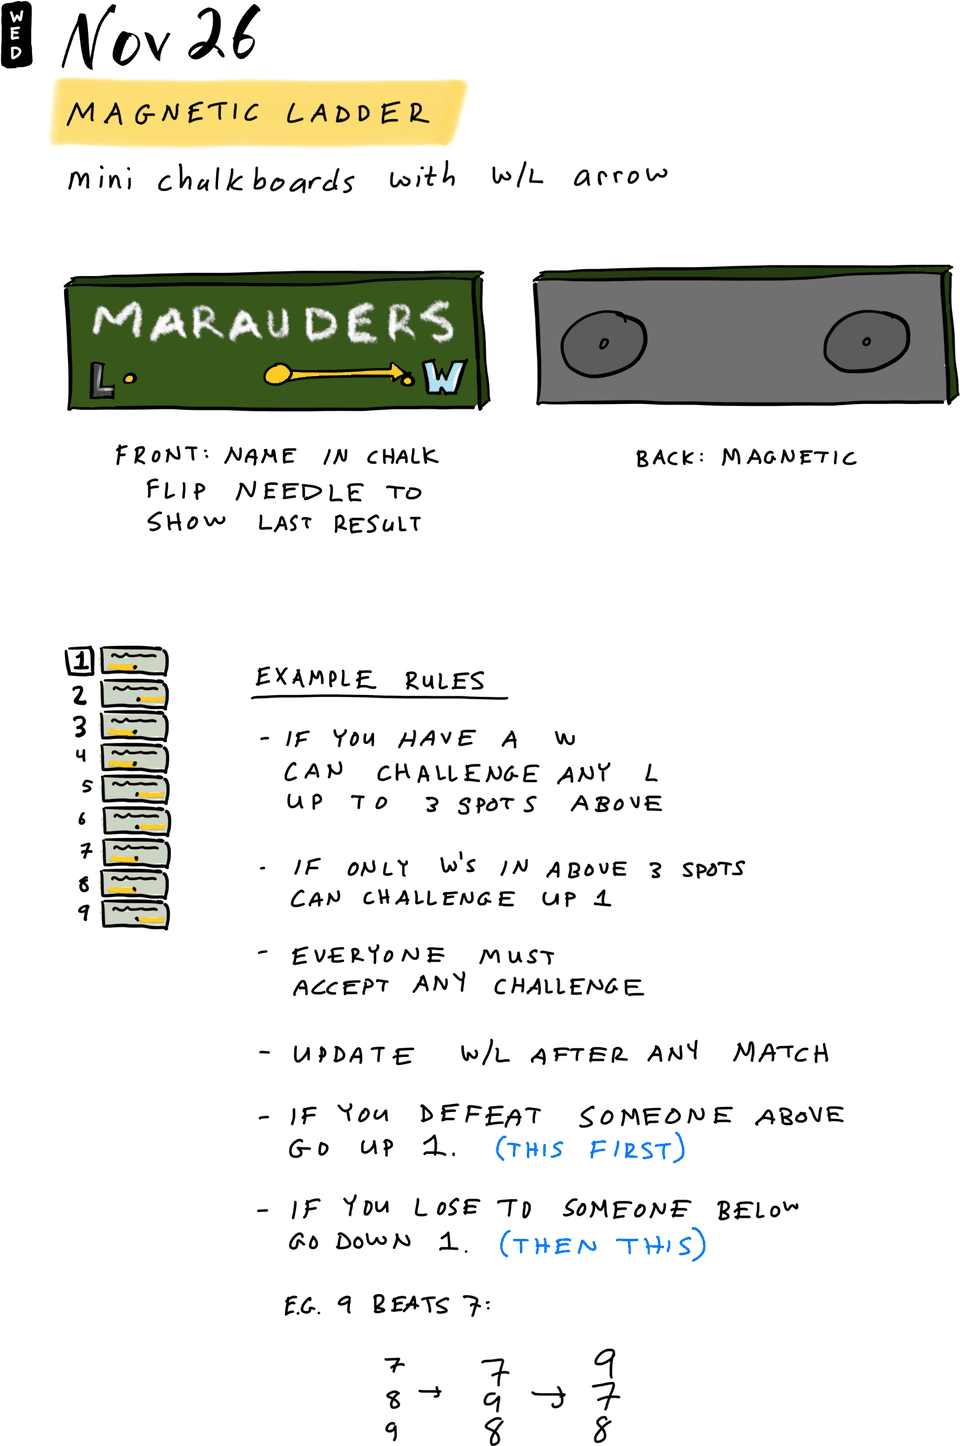 WED
Nov 26
MAGNETIC LADDER
mini chalkboards with W/L arrow
MARAUDERS
L W
FRONT: NAME IN CHALK
FLIP NEEDLE TO
SHOW LAST RESULT
BACK: MAGNETIC
1
2
3
4
5
6
7
8
9
EXAMPLE RULES
- IF YOU HAVE A W
CAN CHALLENGE ANY L
UP TO 3 SPOTS ABOVE
- IF ONLY W'S IN ABOVE 3 SPOTS
CAN CHALLENGE UP 1
- EVERYONE MUST
ACCEPT ANY CHALLENGE
- UPDATE W/L AFTER ANY MATCH
- IF YOU DEFEAT SOMEONE ABOVE
GO UP 1. (THIS FIRST)
- IF YOU LOSE TO SOMEONE BELOW
GO DOWN 1. (THEN THIS)
E.G. 9 BEATS 7:
7 7 9
8 → 9 → 7
9 8 8